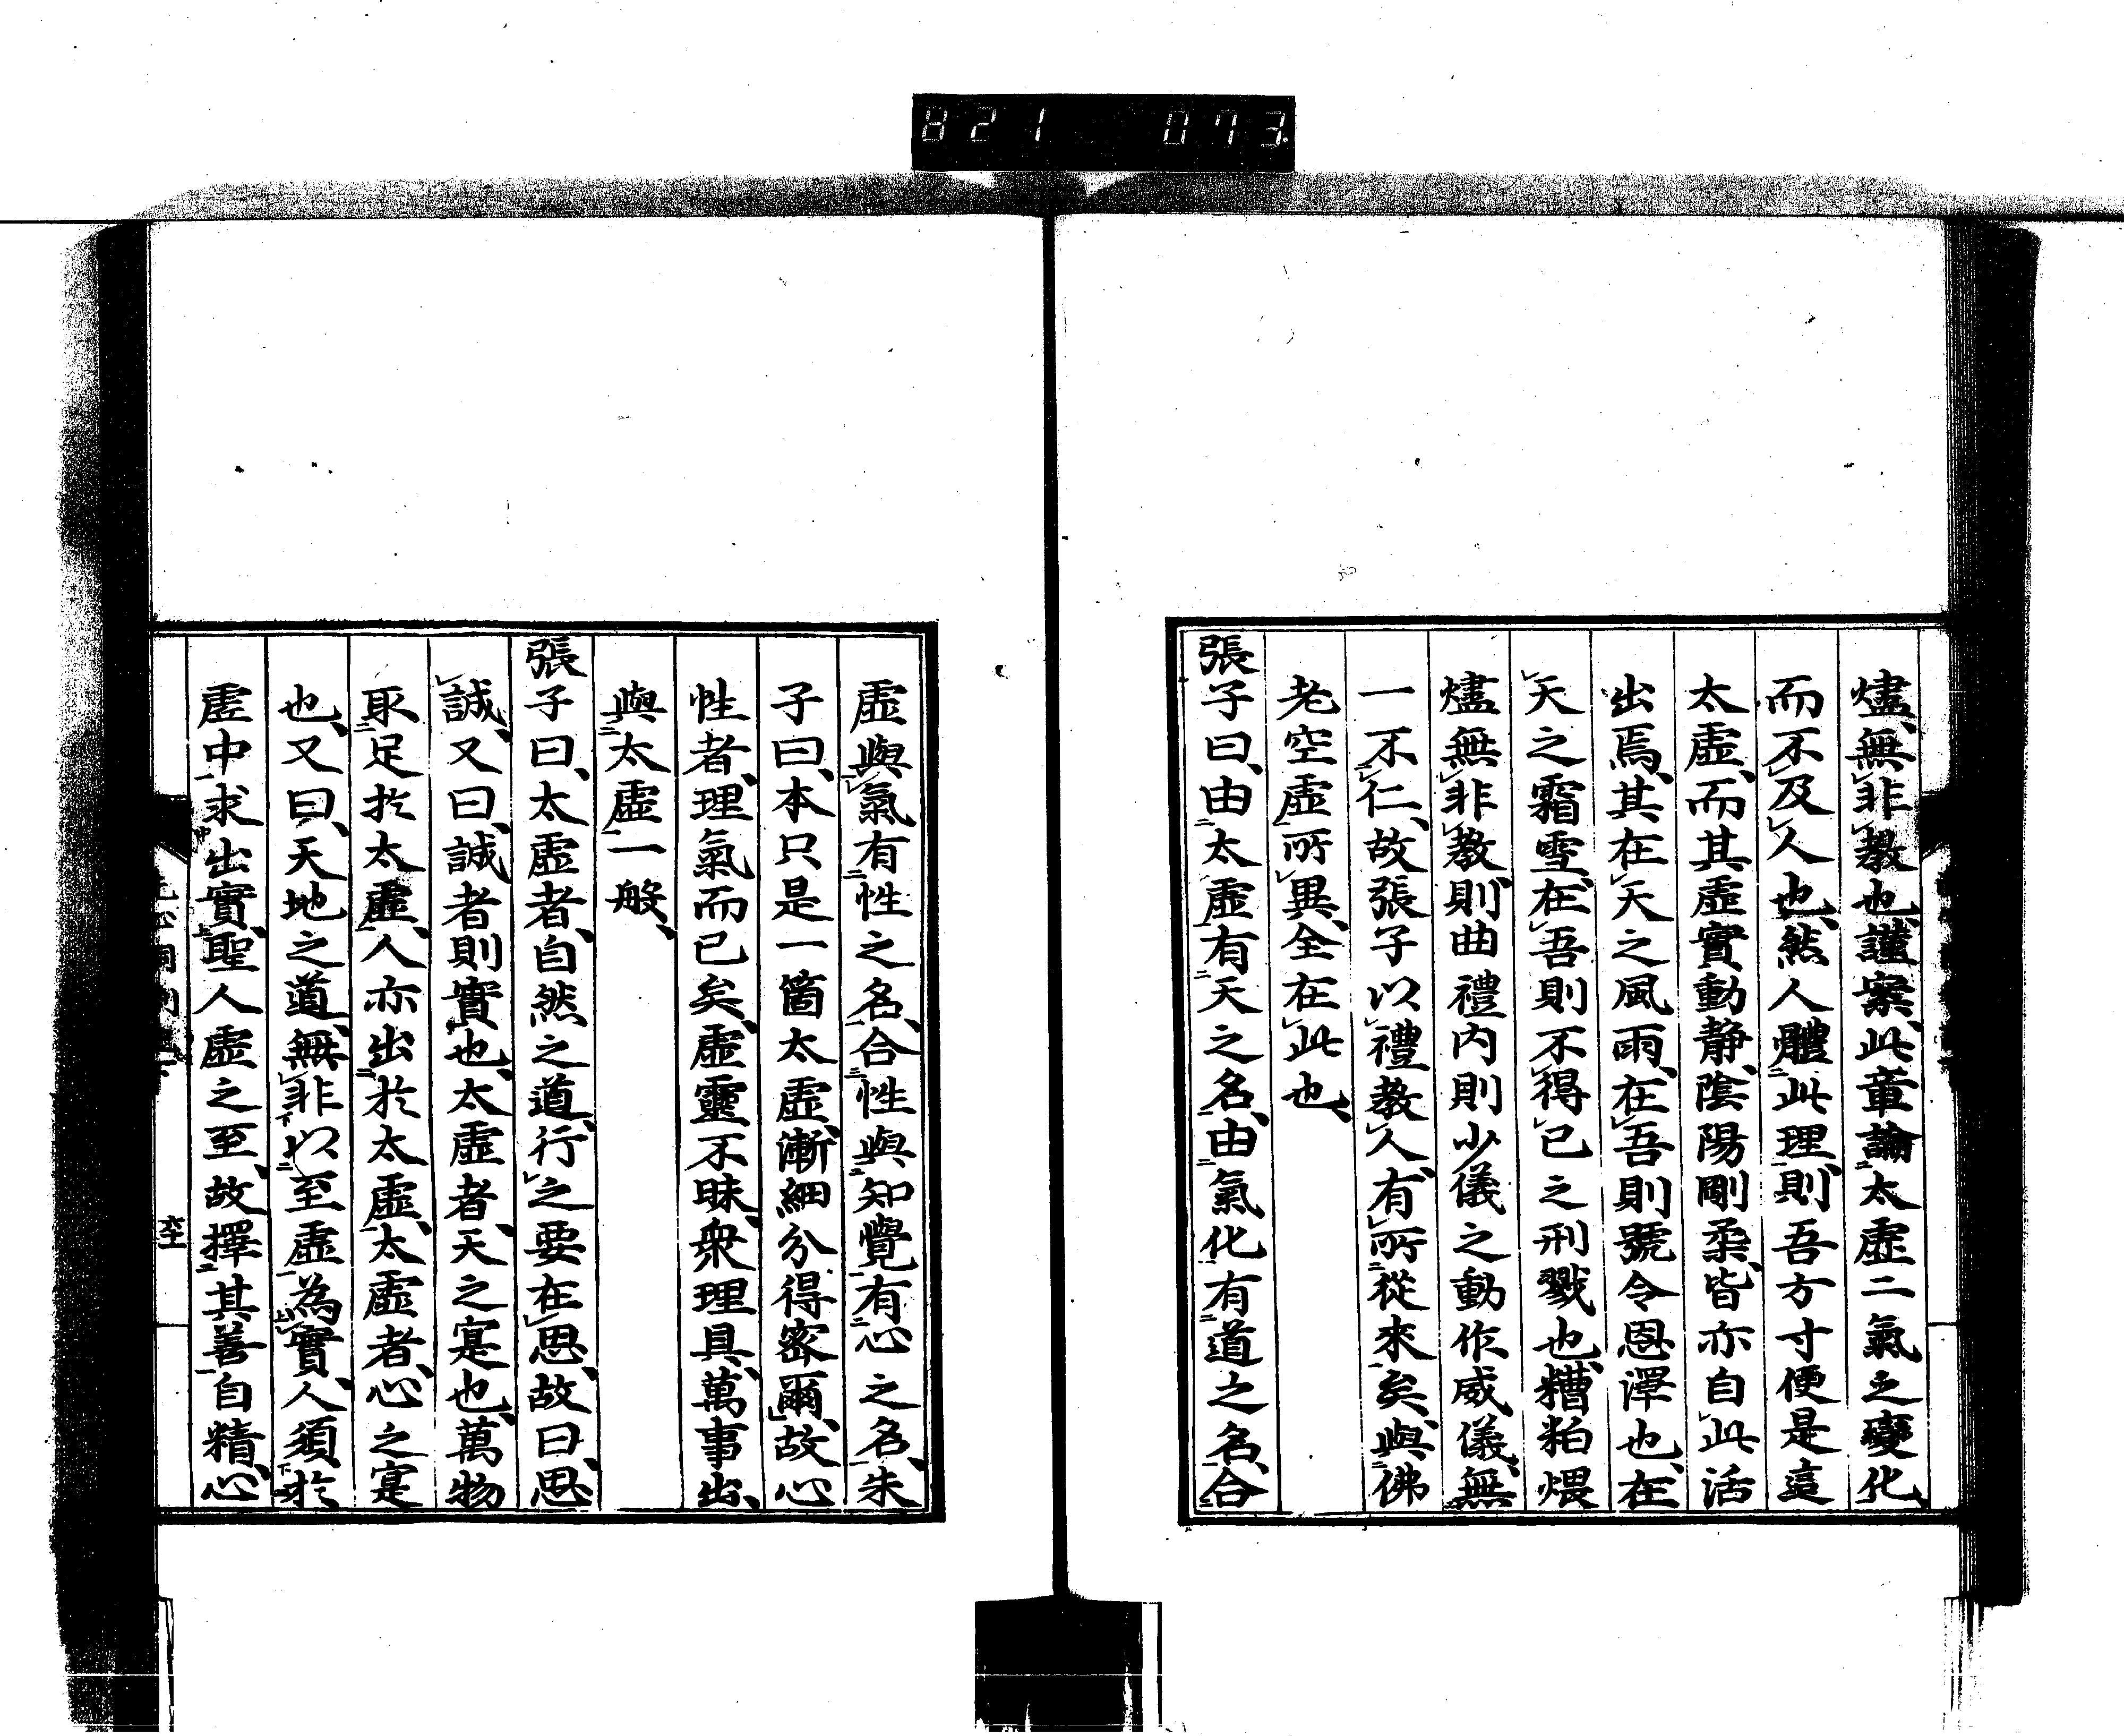 821 073
燼、無非教也、謹案、此章論太虛二氣之變化、
而不及人也、然人體此理、則吾方寸便是這
太虛、而其虛實動静、陰陽剛柔、皆亦自此活
出焉、其在天之風雨、在吾則號令恩澤也、在
天之霜雪、在吾則不得已之刑戮也、糟粕煨
燼無非教、則曲禮内則少儀之動作威儀、無
一不仁、故張子以禮教人、有所從來矣、與佛
老空虛所異、全在此也、
張子曰、由太虛有天之名、由氣化有道之名、合
虛與氣有性之名、合性與知覺有心之名、朱
子曰、本只是一箇太虛、漸細分得密爾、故心
性者、理氣而已矣、虛靈不昧、衆理具、萬事出、
與太虛一般、
張子曰、太虛者、自然之道、行之要在思、故曰、思
誠、又曰、誠者則實也、太虛者、天之寔也、萬物
取足於太虛、人亦出於太虛、太虛者、心之寔
也、又曰、天地之道、無非以至虛為實、人須於
虛中求出實、聖人虛之至、故擇其善自精、心